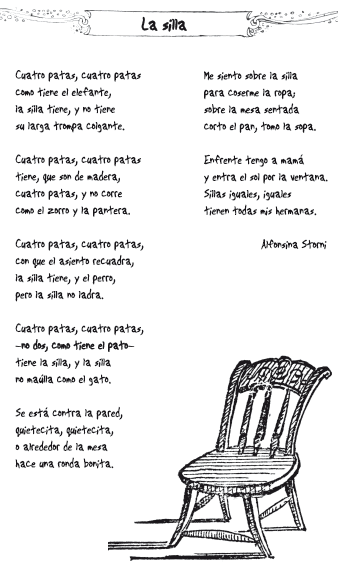 La silla
Cuatro patas, cuatro patas
como tiene el elefante,
la silla tiene, y no tiene
su larga trompa colgante.
Cuatro patas, cuatro patas
tiene, que son de madera,
cuatro patas, y no corre
como el zorro y la pantera.
Cuatro patas, cuatro patas,
con que el asiento recuadra,
la silla tiene, y el perro,
pero la silla no ladra.
Cuatro patas, cuatro patas,
—no dos, como tiene el pato—
tiene la silla, y la silla
no maúlla como el gato.
Se está contra la pared,
quietecita, quietecita,
o alrededor de la mesa
hace una ronda bonita.
Me siento sobre la silla
para coserme la ropa;
sobre la mesa sentada
corto el pan, tomo la sopa.
Enfrente tengo a mamá
y entra el sol por la ventana.
Sillas iguales, iguales
tienen todas mis hermanas.
Alfonsina Storni